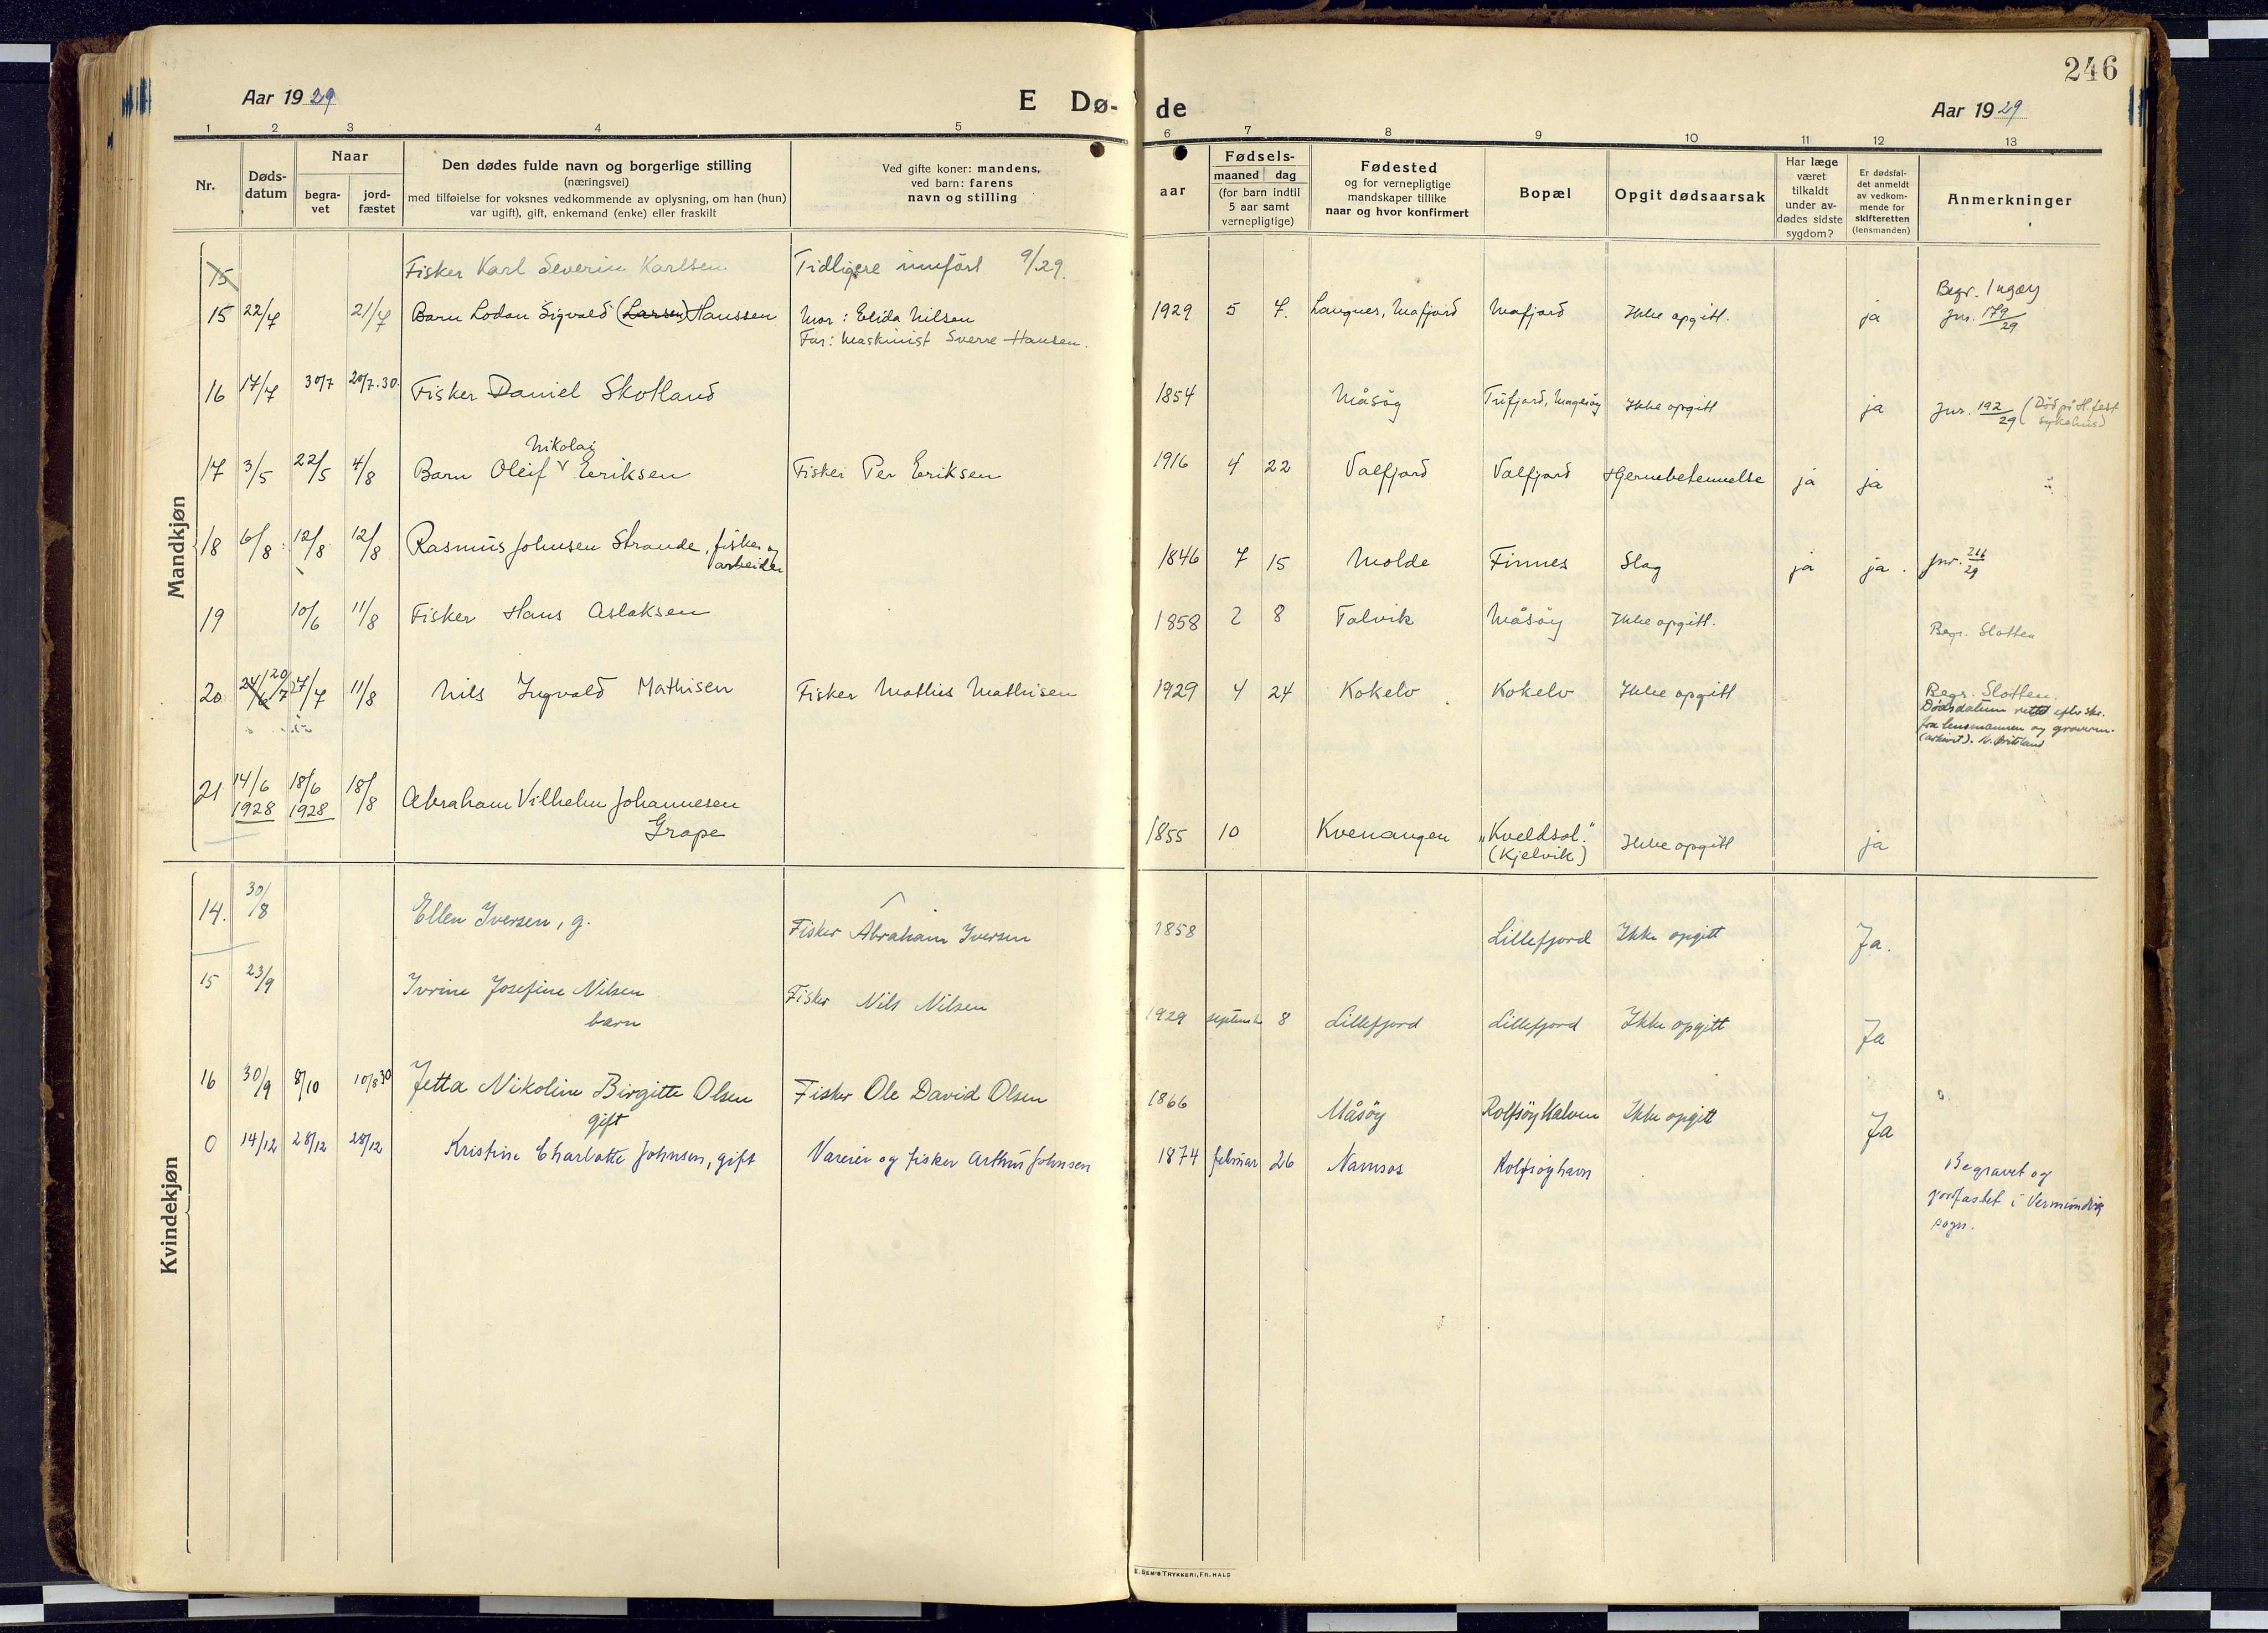 246
Aar 1929
E Dø-
de
Aar 1929
1 2 3 4 5 6 7 8 9 10 11 12 13
Nr.
Døds-
datum
Naar
begra-
vet
jord-
fæstet
Den dødes fulde navn og borgerlige stilling
(næringsvei)
med tilføielse for voksnes vedkommende av oplysning, om han (hun)
var ugift), gift, enkemand (enke) eller fraskilt
Ved gifte koner: mandens,
ved barn: farens
navn og stilling
Fødsels-
aar
maaned dag
(for barn indtil
5 aar samt
vernepligtige)
Fødested
og for vernepligtige
mandskaper tillike
naar og hvor konfirmert
Bopæl
Opgit dødsaarsak
Har læge
været
tilkaldt
under av-
dødes sidste
sygdom?
Er dødsfal-
det anmeldt
av vedkom-
mende for
skifteretten
(lensmanden)
Anmerkninger
Mandkjøn
15 Fisker Karl Severin Karlsen Tidligere innført 9/29.
15 22/7 21/7 Barn Lodan Sigvald (Larsen) Hanssen Mor: Elida Nilsen 1929 5 7. Langnes, Mafjord Mafjord Ikke opgitt. ja Begr. Ingøy
Far: Maskinist Sverre Hansen. Jnr. 179/29
16 17/7 30/7 20/7.30. Fisker Daniel Skotland 1854 Måsøy Tufjord, Magerøy Ikke opgitt ja Jnr. 192/29 (Død på H.fest
sykehus)
Nikolai
17 3/5 22/5 4/8 Barn Oleif Eriksen Fisker Per Eriksen 1916 4 22 Valfjord Valfjord Hjernebetennelse ja ja
18 6/8 12/8 12/8 Rasmus Johnsen Strande, fisker og 1846 7 15 Molde Finnes Slag ja ja. Jnr. 211/29
arbeider
19 10/6 11/8 Fisker Hans Aslaksen 1858 2 8 Talvik Måsøy Ikke opgitt. Begr. Slotten
20 24/6 20/7 27/7 11/8 Nils Ingvald Mathisen Fisker Mathis Mathisen 1929 4 24 Kokelv Kokelv Ikke opgitt Begr. Slotten.
Dødsdatum rettet efter skr.
fra lensmannen og graveren.
(arkivet).
21 14/6 1928 18/6 1928 18/8 Abraham Vilhelm Johannesen
Grape 1855 10 Kvenangen "Kveldsol." Ikke opgitt ja
(Kjelvik)
Kvindekjøn
14. 30/8 Ellen Iversen, g. Fisker Abraham Iversen 1858 Lillefjord Ikke opgitt Ja.
15 23/9 Ivrine Josefine Nilsen Fisker Nils Nilsen 1929 september 8 Lillefjord Lillefjord Ikke opgitt Ja
barn
16 30/9 8/10 10/8 30 Jetta Nikoline Birgitte Olsen Fisker Ole David Olsen 1866 Måsøy Rolfsøyhalven Ikke opgitt Ja
gift
0 14/12 28/12 28/12 Kristine Charlotte Johnsen, gift Væreier og fisker Arthur Johnsen 1874 februar 26 Namsos Rolfsøyhavn Begravet og
jordfæstet i Vemundvik
sogn.
E. SEM'S TRYKKERI, FR.HALD